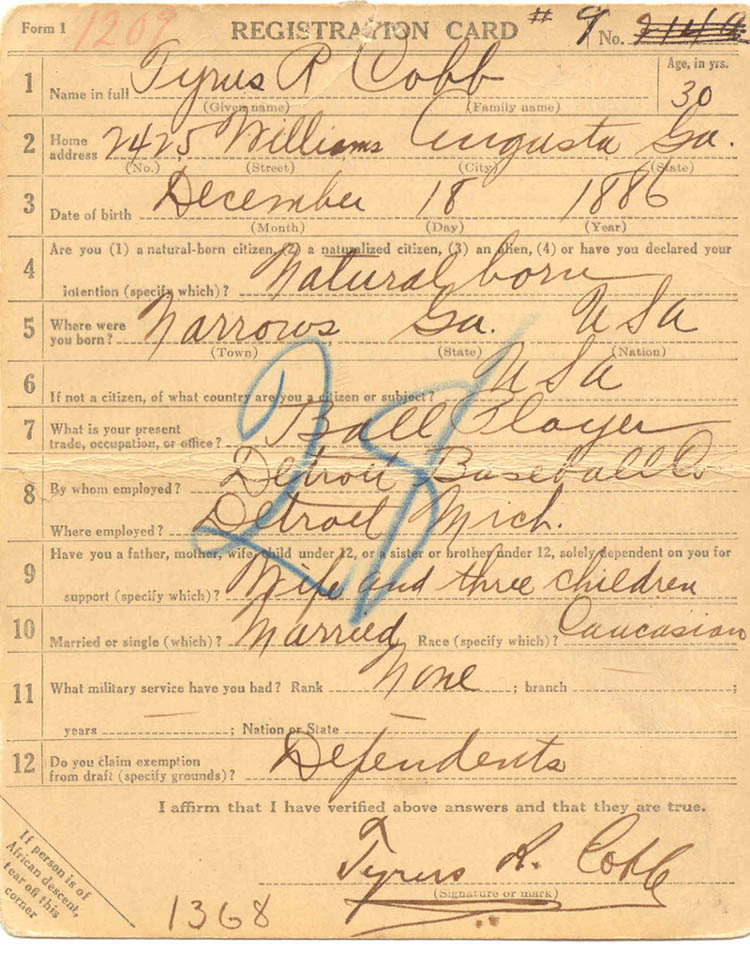 Form 1 1209 REGISTRATION CARD # 9 No.
1 Name in full Tyrus R Cobb Age, in yrs. 30
(Given name) (Family name)
2 Home address 2425 Williams Augusta Ga.
(No.) (Street) (City) (State)
3 Date of birth December 18 1886
(Month) (Day) (Year)
Are you (1) a natural-born citizen, (2) a naturalized citizen, (3) an alien, (4) or have you declared your
4 intention (specify which)? Natural born
5 Where were you born? Narrows Ga. USA
(Town) (State) (Nation)
6 If not a citizen, of what country are you a citizen or subject? USA
7 What is your present trade, occupation, or office? Ball Player
8 By whom employed? Detroit Baseball Co
Where employed? Detroit Mich.
28
9 Have you a father, mother, wife, child under 12, or a sister or brother under 12, solely dependent on you for
support (specify which)? Wife and three children
10 Married or single (which)? Married Race (specify which)? Caucasian
11 What military service have you had? Rank None ; branch ;
years ; Nation or State
12 Do you claim exemption from draft (specify grounds)? Dependents
I affirm that I have verified above answers and that they are true.
Tyrus R. Cobb
(Signature or mark)
If person is of
African descent,
tear off this
corner
1368